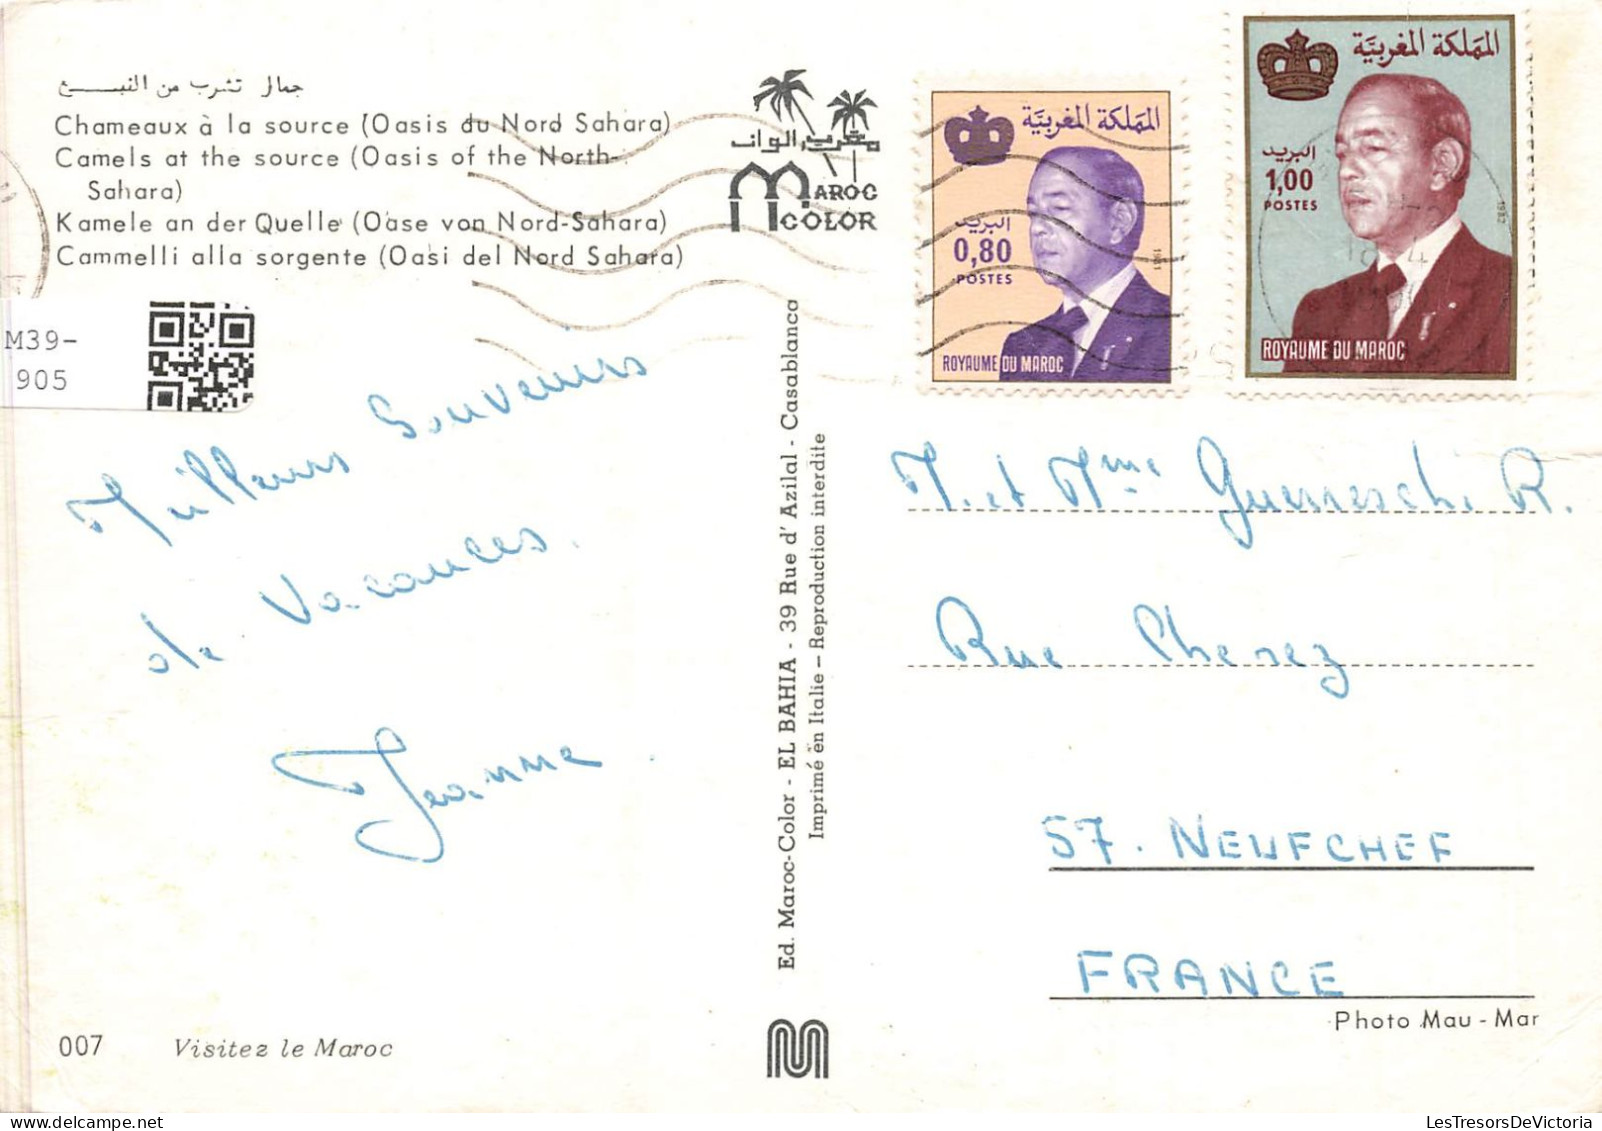 جمال تشرب من النبع
Chameaux à la source (Oasis du Nord Sahara)
Camels at the source (Oasis of the North-
Sahara)
Kamele an der Quelle (Oase von Nord-Sahara)
Cammelli alla sorgente (Oasi del Nord Sahara)
مغرب الوان
MAROC
COLOR
M39-
905
المملكة المغربية
البريد
0,80
POSTES
1981
ROYAUME DU MAROC
المملكة المغربية
البريد
1,00
POSTES
1982
ROYAUME DU MAROC
Meilleurs Souvenirs
de Vacances.
Jeanne.
Ed. Maroc-Color - EL BAHIA - 39 Rue d'Azilal - Casablanca
Imprimé en Italie - Reproduction interdite
M. et Mme Guerreschi R.
Rue Cherez
57. NEUFCHEF
FRANCE
Photo Mau - Mar
007 Visitez le Maroc
LesTresorsDeVictoria